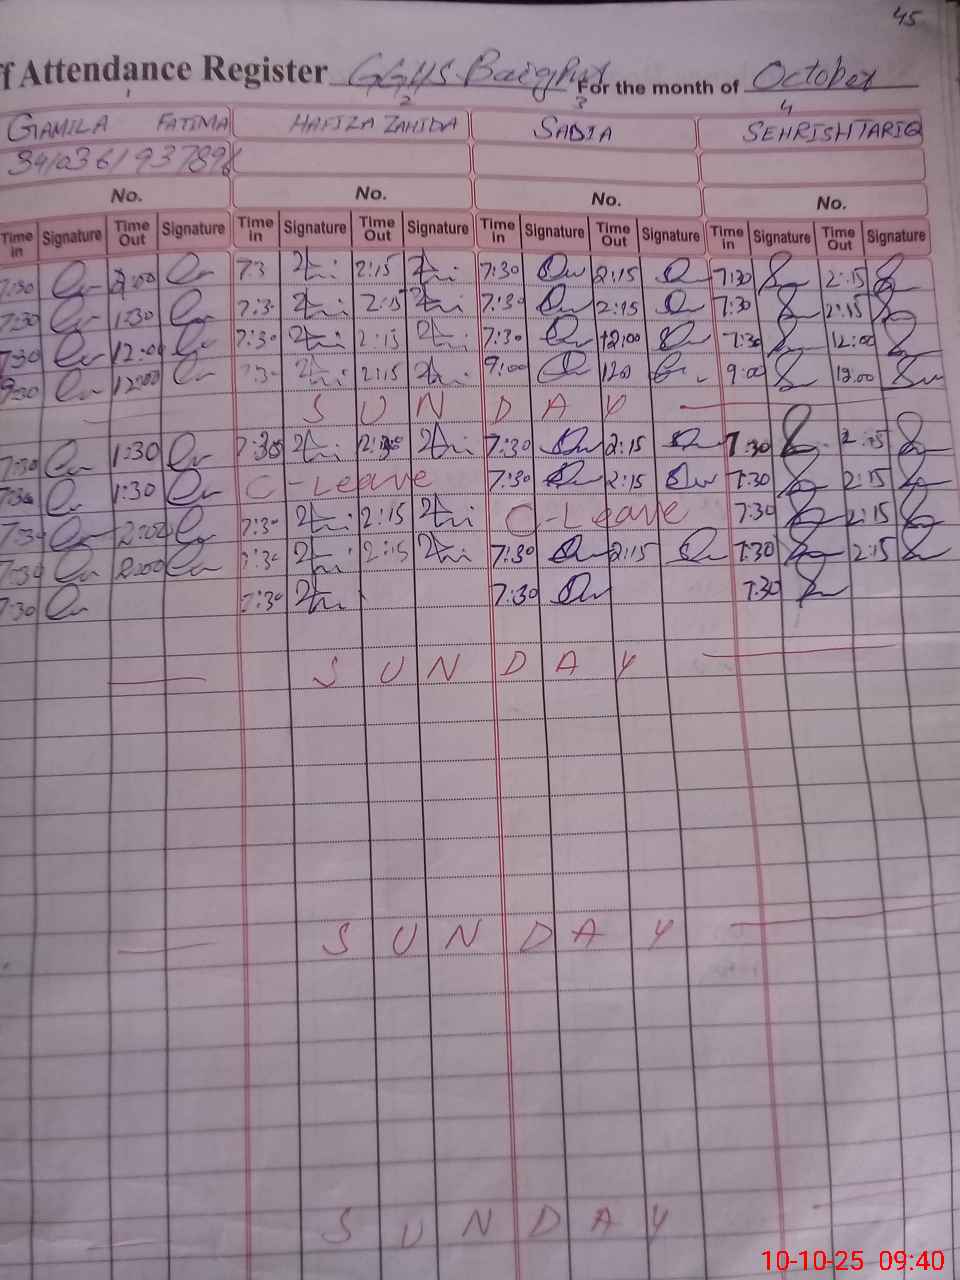 45
f Attendance Register GGHS Baigpur For the month of October
1 2 3 4
GAMILA FATIMA HAFIZA ZAHIDA SADIA SEHRISH TARIQ
No. No. No. No.
Time in Signature Time Out Signature Time in Signature Time Out Signature Time in Signature Time Out Signature Time in Signature Time Out Signature
7:30 2:00 7:3 2:15 7:30 2:15 7:30 2:15
7:30 1:30 7:3 2:15 7:30 2:15 7:30 2:15
7:30 12:00 7:30 2:15 7:30 12:00 7:30 12:00
9:30 12:00 2:15 9:00 9:00 12:00
SUNDAY
7:30 1:30 7:30 7:30 2:15 7:30 2:15
7:30 1:30 C-Leave 7:30 2:15 7:30 2:15
7:30 2:00 7:30 2:15 C-Leave 7:30 2:15
7:30 2:00 7:30 2:15 7:30 2:15 7:30 2:15
7:30 7:30 7:30 7:30
SUNDAY
SUNDAY
SUNDAY
10-10-25 09:40